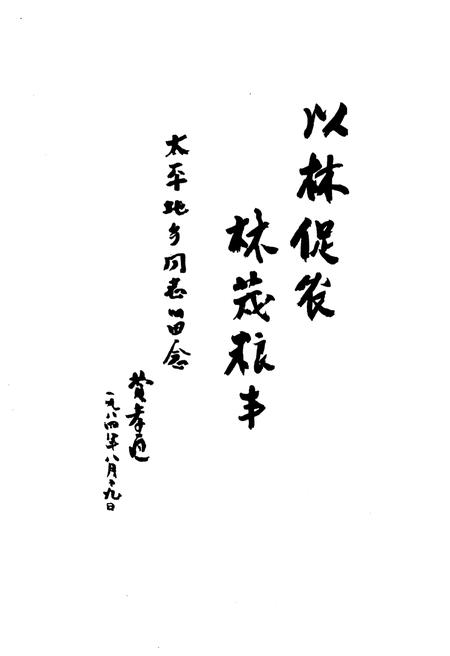 以林促农
林茂粮丰
太平地乡同志留念
费孝通
一九八四年八月十九日